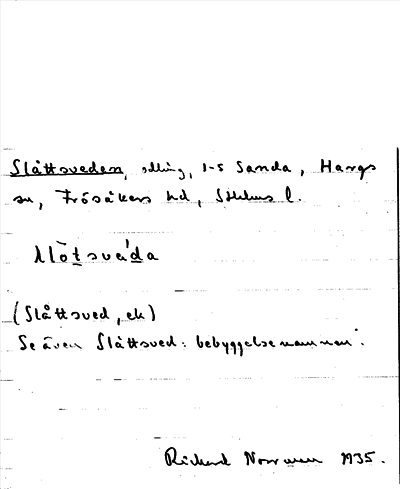 Slåttsveden, odling, 1-5 Sanda, Hargs
sn, Frösåkers hd, Sthlms l.
(Slåttsved, ek)
Se även Slåttsved: bebyggelsenamnen.
Richard Norrman 1935.